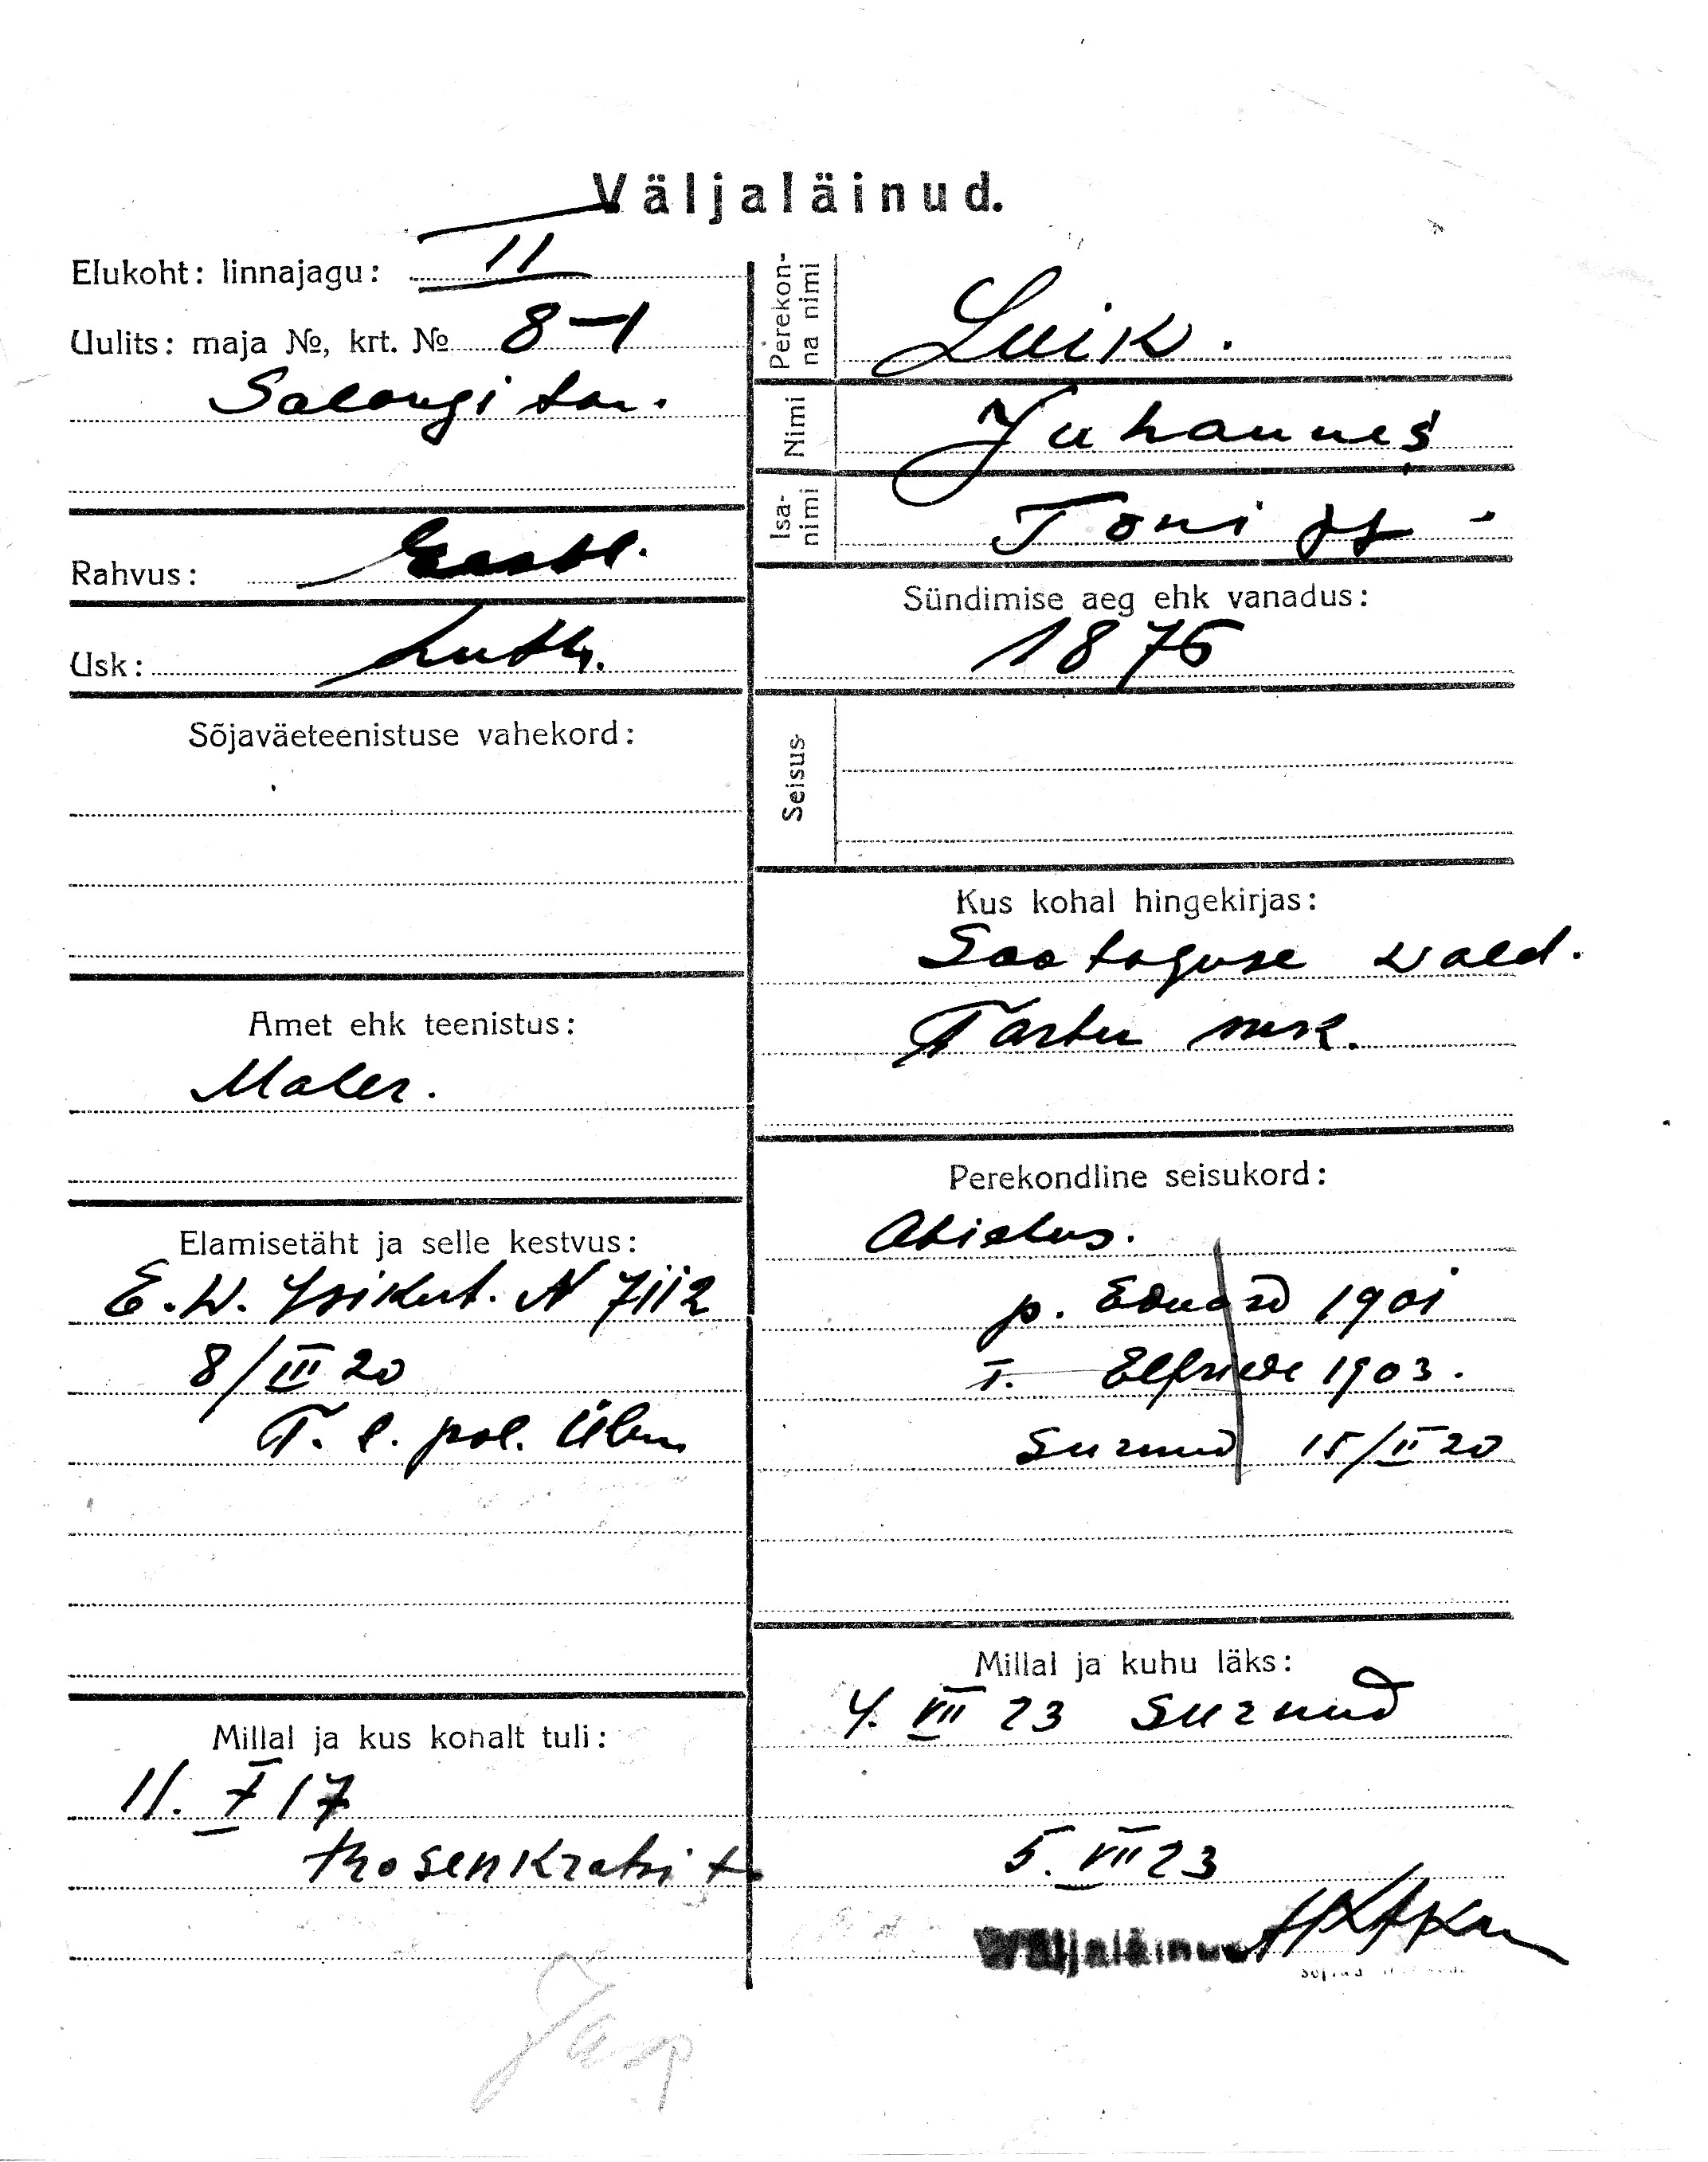 Väljaläinud.
Elukoht: linnajagu: II
Uulits: maja №, krt. № 8-1
Salongi tän.
Rahvus: Eestl.
Usk: Luth.
Sõjaväeteenistuse vahekord:
Amet ehk teenistus:
Maler.
Elamisetäht ja selle kestvus:
E.W. Isikut. N 7112
8/III 20
T. l. pol. Ülem
Millal ja kus kohalt tuli:
11. I 17
Rosenkratsi t.
Perekonna nimi
Luik.
Nimi
Juhannes
Isanimi
Toni pg -
Sündimise aeg ehk vanadus:
1876
Seisus
Kus kohal hingekirjas:
Sootaguse wald.
Tartu mk.
Perekondline seisukord:
Abielus.
p. Eduard 1901
T. Elfriede 1903.
Surnud 15/II 20
Millal ja kuhu läks:
4. VII 23 Surnud
5. VII 23
Väljaläinud